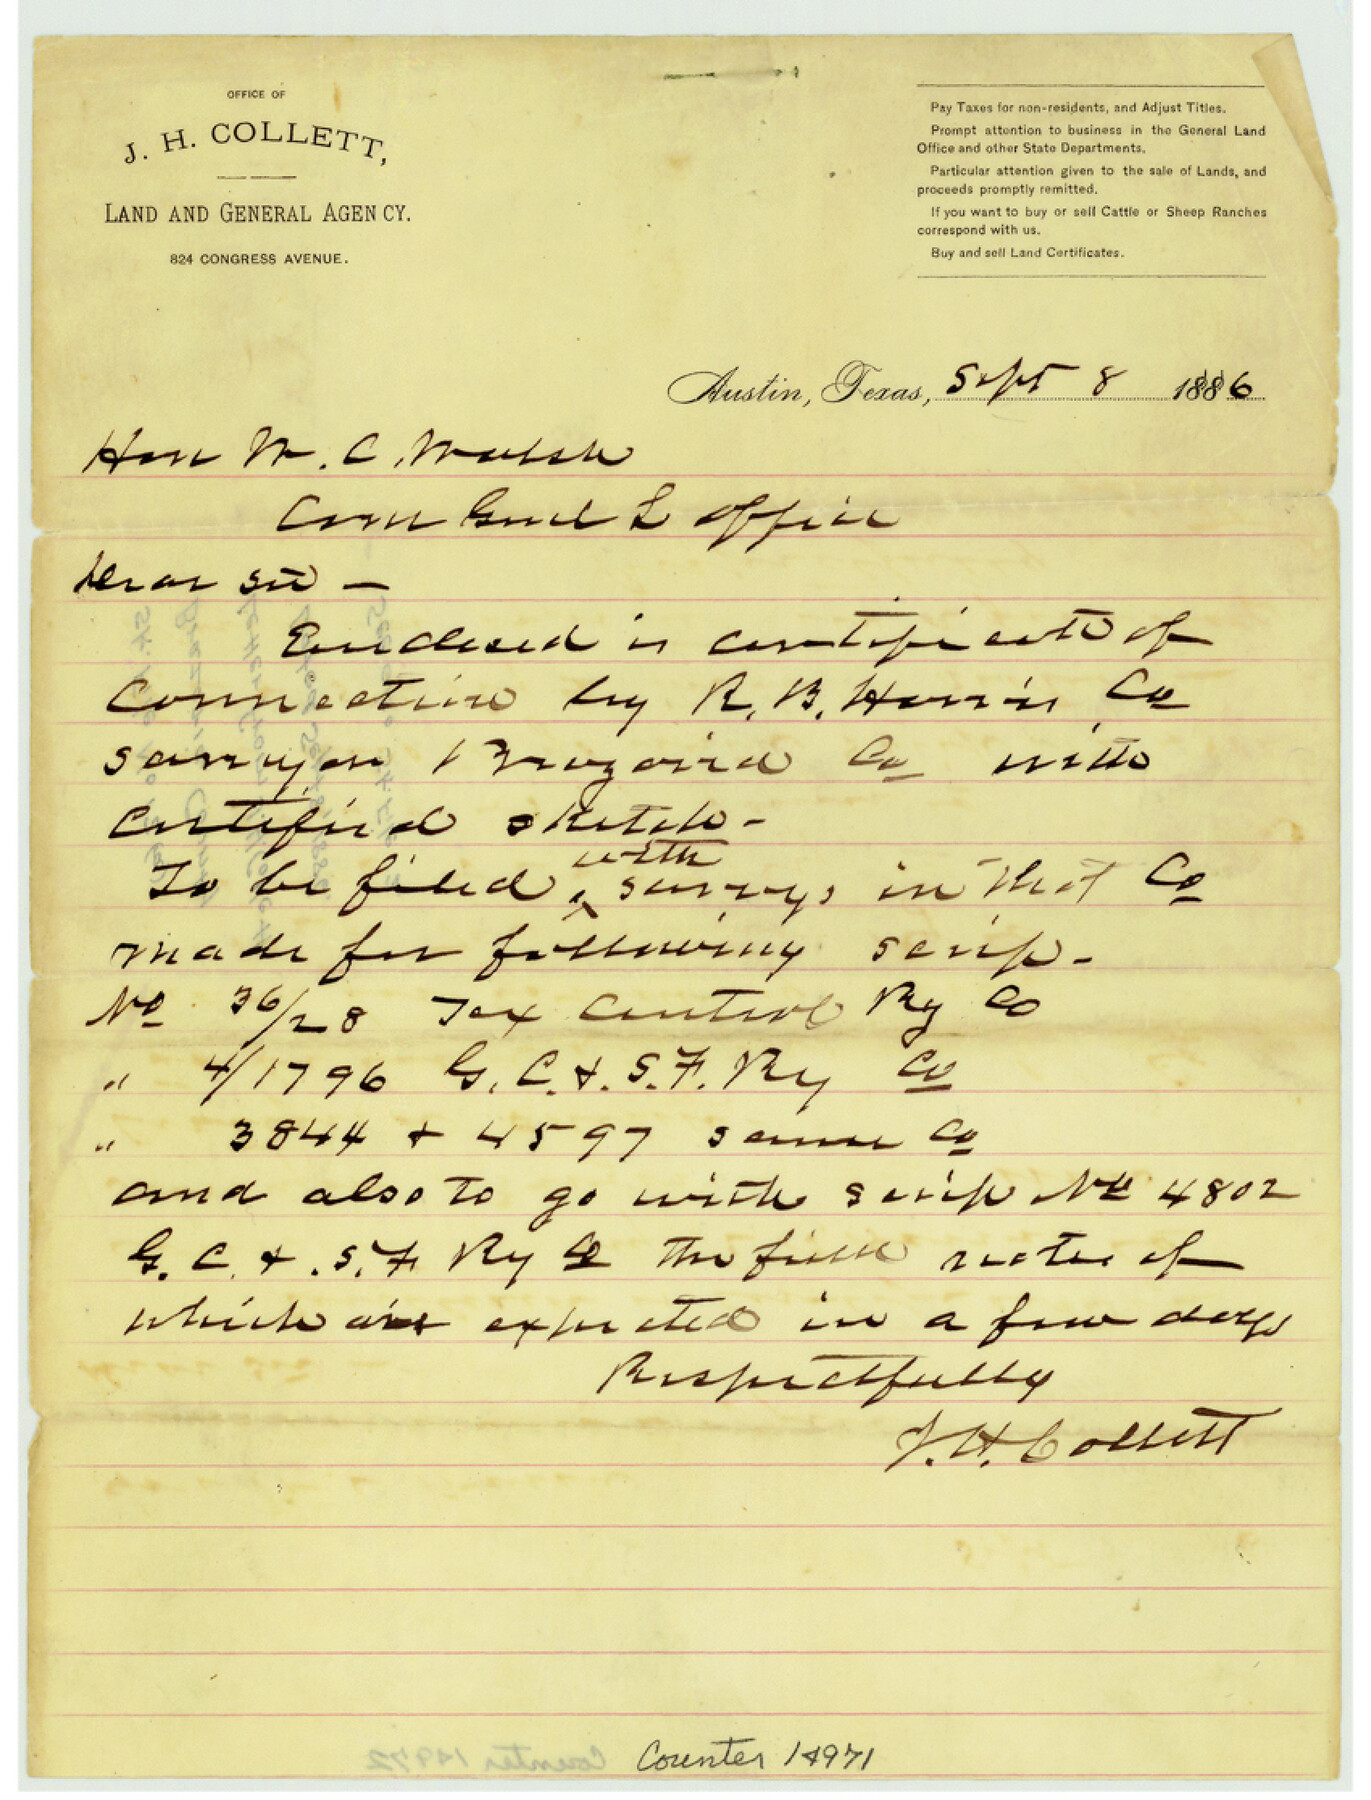 OFFICE OF
J. H. COLLETT,
LAND AND GENERAL AGENCY.
824 CONGRESS AVENUE.
Pay Taxes for non-residents, and Adjust Titles.
Prompt attention to business in the General Land
Office and other State Departments.
Particular attention given to the sale of Lands, and
proceeds promptly remitted.
If you want to buy or sell Cattle or Sheep Ranches
correspond with us.
Buy and sell Land Certificates.
Austin, Texas, Sept 8 1886
Hon W. C. Walsh
Com Genl L Office
Dear Sir —
Enclosed is certificate of
Connection by R. B. Harris Co
surveyor Brazoria Co with
Certified sketch -
To be filed with surveys in that Co
made for following scrip -
No 36/28 Tex Central Ry Co
" 4/1796 G. C. & S. F. Ry Co
" 3844 & 4597 same Co
and also to go with scrip No 4802
G. C. & S. F Ry Co the field notes of
which are expected in a few days
Respectfully
J. H. Collett
Counter 14971
Counter 14972